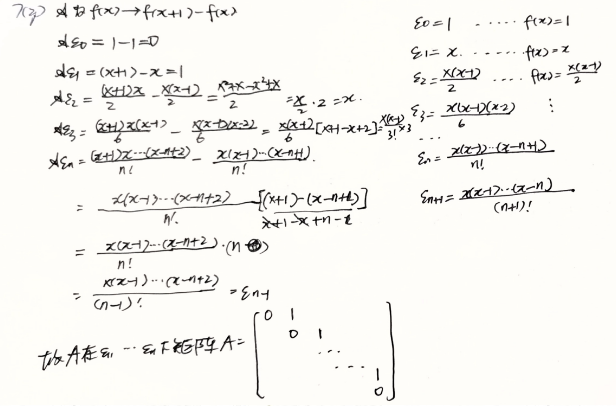 7(2) A为f(x)→f(x+1)-f(x)
Aε0=1-1=0
Aε1=(x+1)-x=1
Aε2=(x+1)x/2-x(x-1)/2=x²+x-x²+x/2=x/2·2=x.
Aε3=(x+1)x(x-1)/6-x(x-1)(x-2)/6=x(x-1)/6[x+1-x+2]=x(x-1)/3!×3
Aεn=(x+1)x…(x-n+2)/n!-x(x-1)…(x-n+1)/n!.
=x(x-1)…(x-n+2)/n![(x+1)-(x-n+1)]
x+1-x+n-1
=x(x-1)…(x-n+2)/n!·(n)
=x(x-1)…(x-n+2)/(n-1)!=εn-1
故A在ε1…εn下矩阵A=
[0 1
0 1
…
… 1
0]
ε0=1 ……f(x)=1
ε1=x.……f(x)=x
ε2=x(x-1)/2 ….f(x)=x(x-1)/2
ε3=x(x-1)(x-2)/6 ⋮
…
εn=x(x-1)…(x-n+1)/n!
εn+1=x(x-1)…(x-n)/(n+1)!